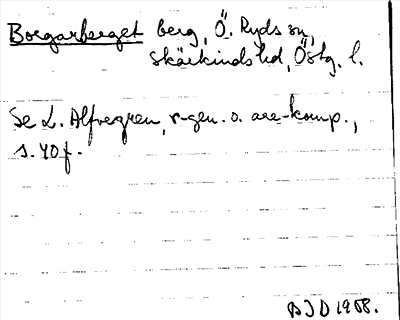 Borgarberget berg, Ö. Ryds sn,
Skärkinds hd, Östg. l.
Se L. Alfvegren, r-gen. o. are-komp.,
s. 40 f.
DJD 1988.